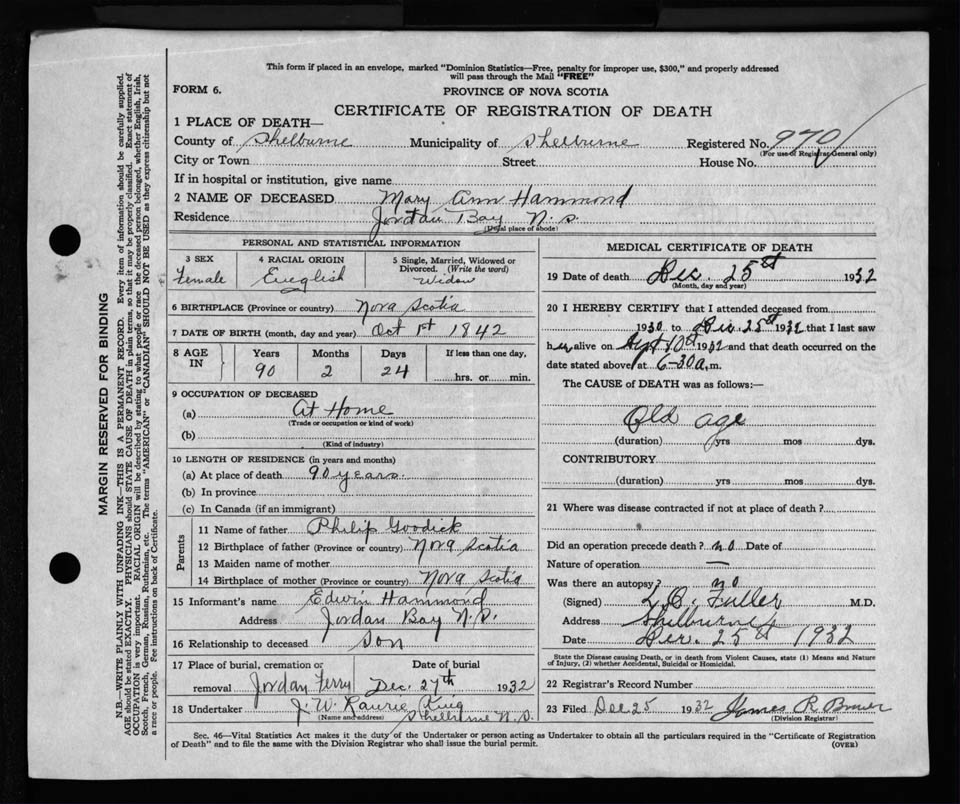 This form if placed in an envelope, marked "Dominion Statistics—Free, penalty for improper use, $300," and properly addressed
will pass through the Mail "FREE"
FORM 6.
PROVINCE OF NOVA SCOTIA
CERTIFICATE OF REGISTRATION OF DEATH
1 PLACE OF DEATH—
County of Shelburne Municipality of Shelburne Registered No. 970
(For use of Registrar General only)
City or Town Street House No.
If in hospital or institution, give name
2 NAME OF DECEASED Mary Ann Hammond
Residence Jordan Bay N.S.
(Usual place of abode)
PERSONAL AND STATISTICAL INFORMATION
3 SEX 4 RACIAL ORIGIN 5 Single, Married, Widowed or
Divorced. (Write the word)
Female English Widow
6 BIRTHPLACE (Province or country) Nova Scotia
7 DATE OF BIRTH (month, day and year) Oct 1st 1842
8 AGE IN Years Months Days If less than one day,
90 2 24 hrs. or min.
9 OCCUPATION OF DECEASED
(a) At Home
(Trade or occupation or kind of work)
(b)
(Kind of industry)
10 LENGTH OF RESIDENCE (in years and months)
(a) At place of death 90 years.
(b) In province
(c) In Canada (if an immigrant)
Parents
11 Name of father Philip Goodick
12 Birthplace of father (Province or country) Nova Scotia
13 Maiden name of mother
14 Birthplace of mother (Province or country) Nova Scotia
15 Informant's name Edwin Hammond
Address Jordan Bay N.S.
16 Relationship to deceased Son
17 Place of burial, cremation or Date of burial
removal Jordan Ferry Dec. 27th 1932
18 Undertaker J. W. King
(Name and address) Shelburne N.S.
MEDICAL CERTIFICATE OF DEATH
19 Date of death Dec. 25th 1932
(Month, day and year)
20 I HEREBY CERTIFY that I attended deceased from
1930 to Dec. 25th 1932 that I last saw
her alive on Sept 10th 1932 and that death occurred on the
date stated above at 6-30 a.m.
The CAUSE of DEATH was as follows:—
Old age
(duration) yrs mos dys.
CONTRIBUTORY
(duration) yrs mos dys.
21 Where was disease contracted if not at place of death?
Did an operation precede death? no Date of
Nature of operation —
Was there an autopsy? no
(Signed) L.O. Fuller M.D.
Address Shelburne
Date Dec. 25th 1932
State the Disease causing Death, or in death from Violent Causes, state (1) Means and Nature
of Injury, (2) whether Accidental, Suicidal or Homicidal.
22 Registrar's Record Number
23 Filed Dec 25 1932 James R. Bower
(Division Registrar)
Sec. 46—Vital Statistics Act makes it the duty of the Undertaker or person acting as Undertaker to obtain all the particulars required in the "Certificate of Registration
of Death" and to file the same with the Division Registrar who shall issue the burial permit.
(OVER)
MARGIN RESERVED FOR BINDING
N.B.—WRITE PLAINLY WITH UNFADING INK—THIS IS A PERMANENT RECORD. Every item of information should be carefully supplied.
AGE should be stated EXACTLY. PHYSICIANS should STATE CAUSE OF DEATH in plain terms, so that it may be properly classified. Exact statement of
OCCUPATION is very important. RACIAL ORIGIN will be described by stating to what people or race the deceased person belonged, whether English, Irish,
Scotch, French, German, Russian, Ruthenian, etc. The terms "AMERICAN" or "CANADIAN" SHOULD NOT BE USED as they express citizenship but not
a race or people. Fee instructions on back of Certificate.